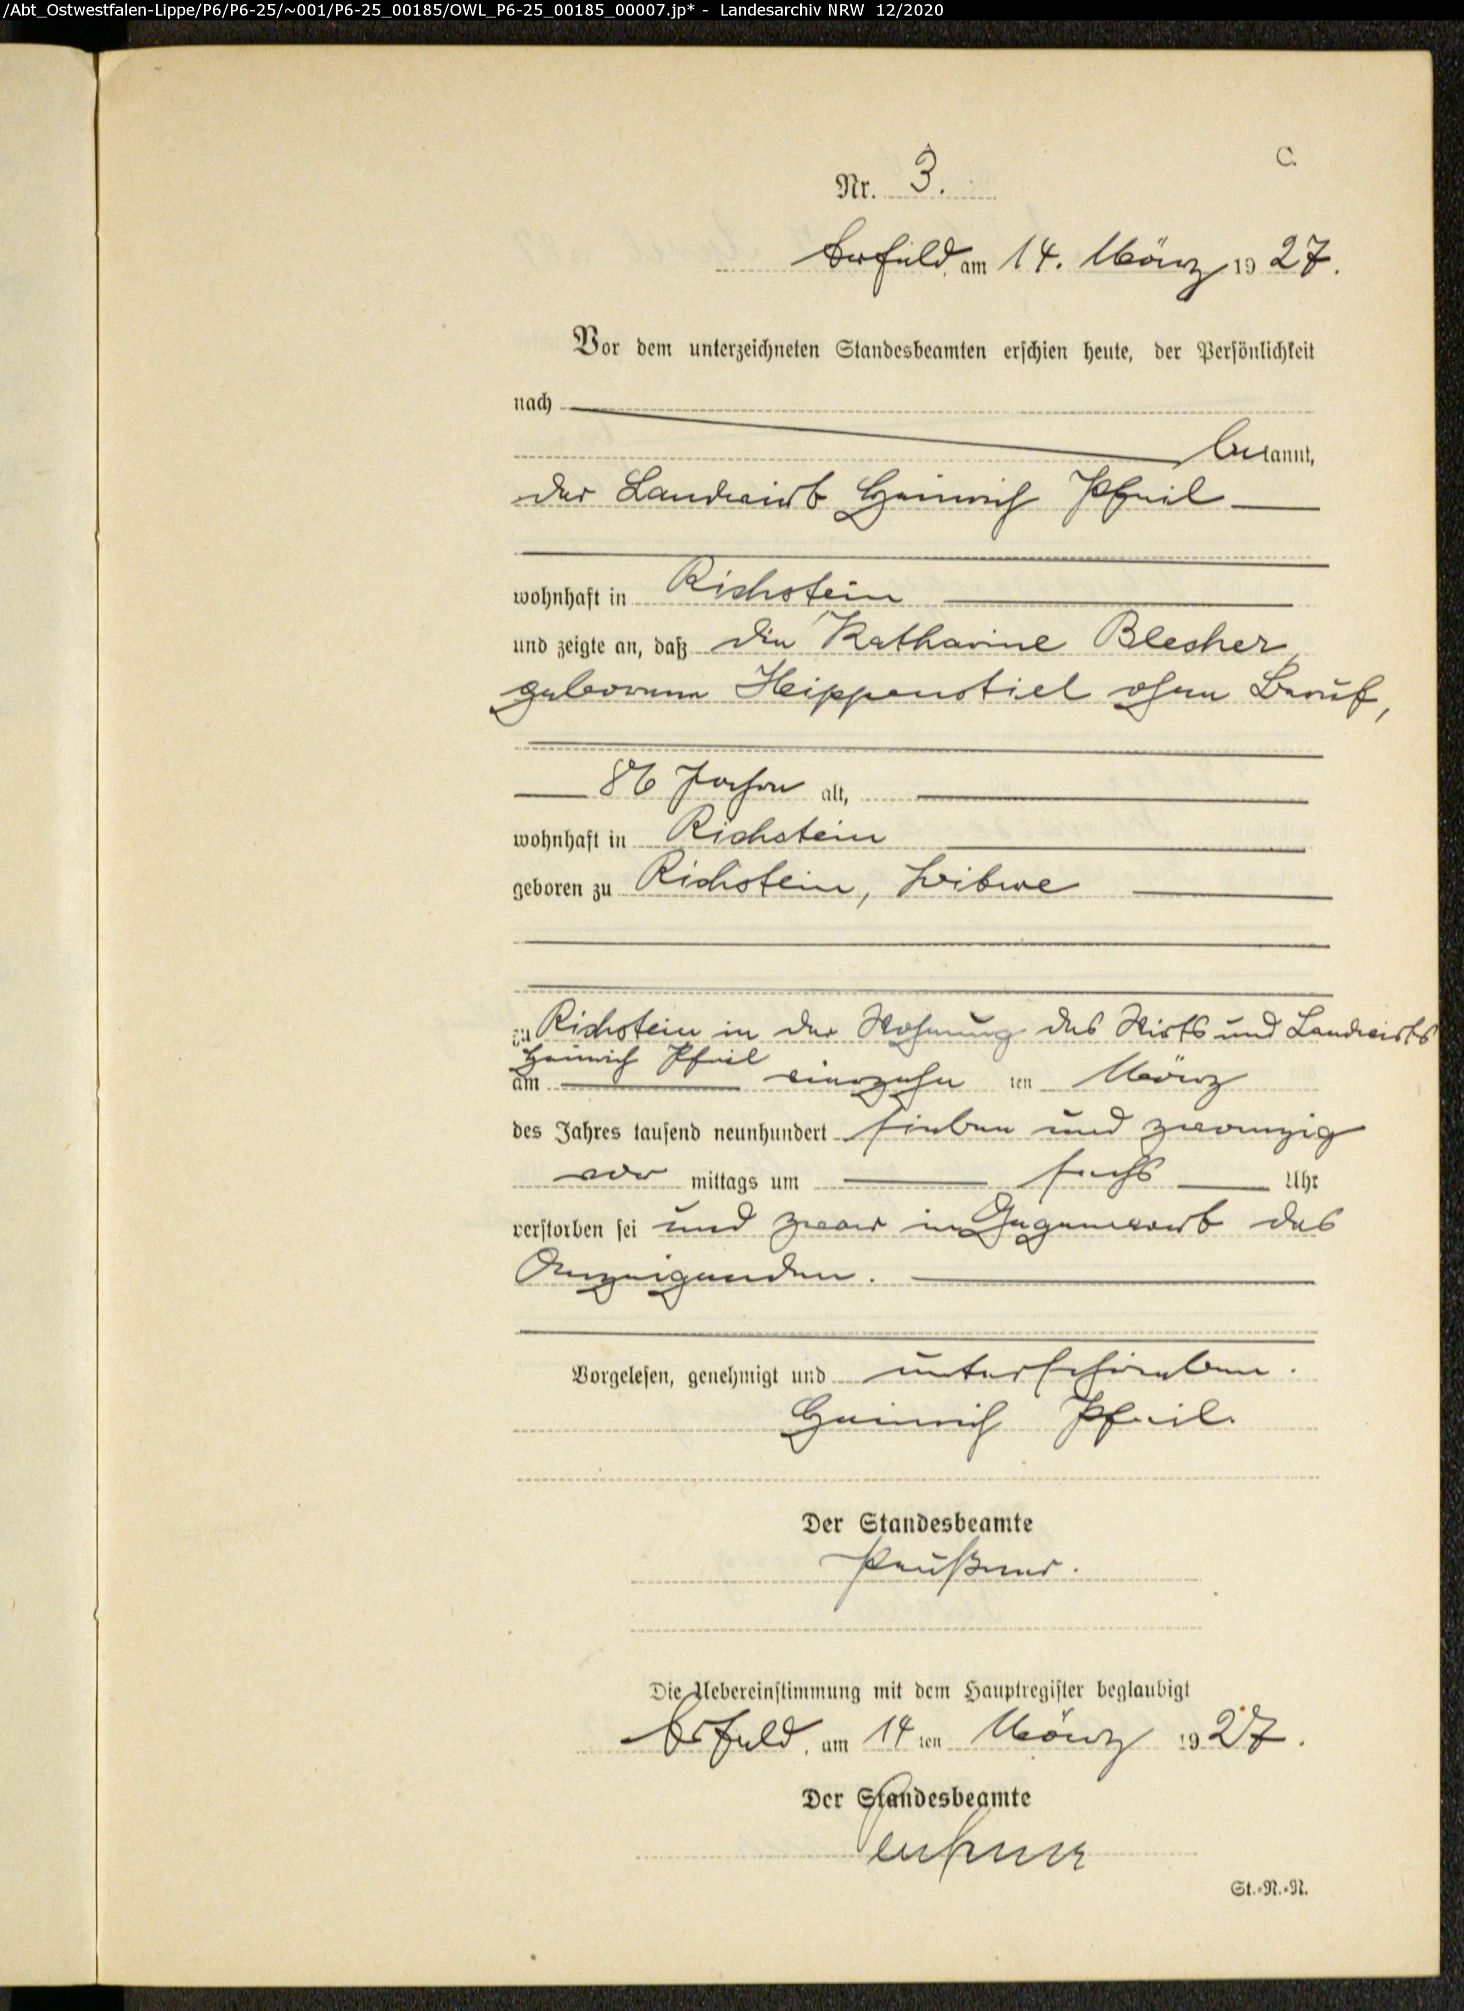 /Abt_Ostwestfalen-Lippe/P6/P6-25/~001/P6-25_00185/OWL_P6-25_00185_00007.jp* - Landesarchiv NRW 12/2020
C.
Nr. 3.
am 14. März 1927.
Vor dem unterzeichneten Standesbeamten erschien heute, der Persönlichkeit
nach
bekannt,
der Landwirt Heinrich Pfeil
wohnhaft in Richstein
und zeigte an, daß die Katharine Blecher
geborene Heippenstiel ohne Beruf,
86 Jahre alt,
wohnhaft in Richstein
geboren zu Richstein, Witwe
zu Richstein in der Wohnung des Wirts und Landwirts
Heinrich Pfeil
am einszehn ten März
des Jahres tausend neunhundert sieben und zwanzig
vor mittags um sechs Uhr
verstorben sei und zwar in Gegenwart des
Anzeigenden.
Vorgelesen, genehmigt und unterschrieben.
Heinrich Pfeil.
Der Standesbeamte
Die Uebereinstimmung mit dem Hauptregister beglaubigt
am 14ten März 1927.
Der Standesbeamte
St.-R.-R.